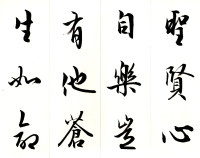 聖賢心
自樂豈
有他蒼
生如命